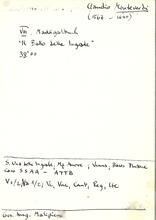 Claudio Monteverdi
(1567 - 1643)
VIII. Madrigalbuch
"Il Ballo delle Ingrate"
38'00
S. Una delle Ingrate, Ms Amore; Venus, Bass Plutone
Coro SSAA - ATTB
Vc, Cemb, Reg, Lte
Malipiero